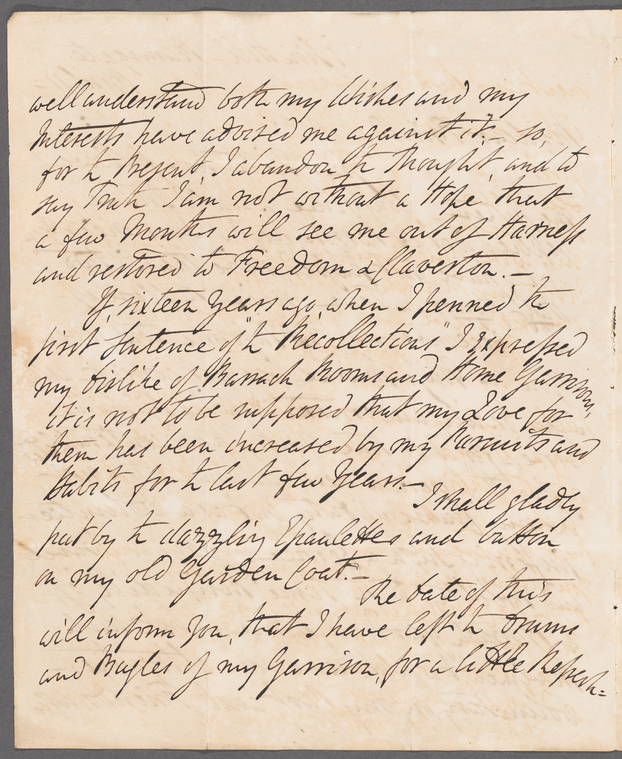 well understand both my Wishes and my
Interests have advised me against it, so,
for the Present, I abandon the Thought, and to
say Truth I am not without a Hope that
a few Months will see me out of Harness
and restored to Freedom & Claverton.—
If, sixteen Years ago, when I penned the
first Sentence of "the Recollections" I expressed
my dislike of Barrack Rooms and Home Garrisons,
it is not to be supposed that my Love for
them has been increased by my Pursuits and
Habits for the last few Years.—
I shall gladly
put by the dazzling Epaulettes and button
on my old Garden Coat.—
The date of this
will inform You, that I have left the Drums
and Bugles of my Garrison, for a little Refresh=